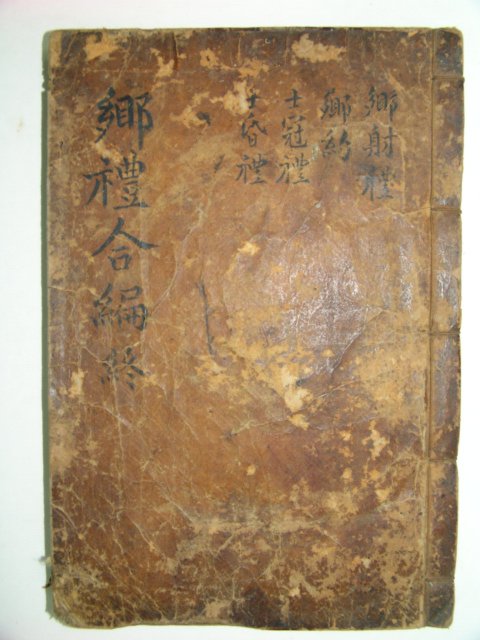 鄕射禮
鄕約
士冠禮
士昏禮
鄕禮合編終